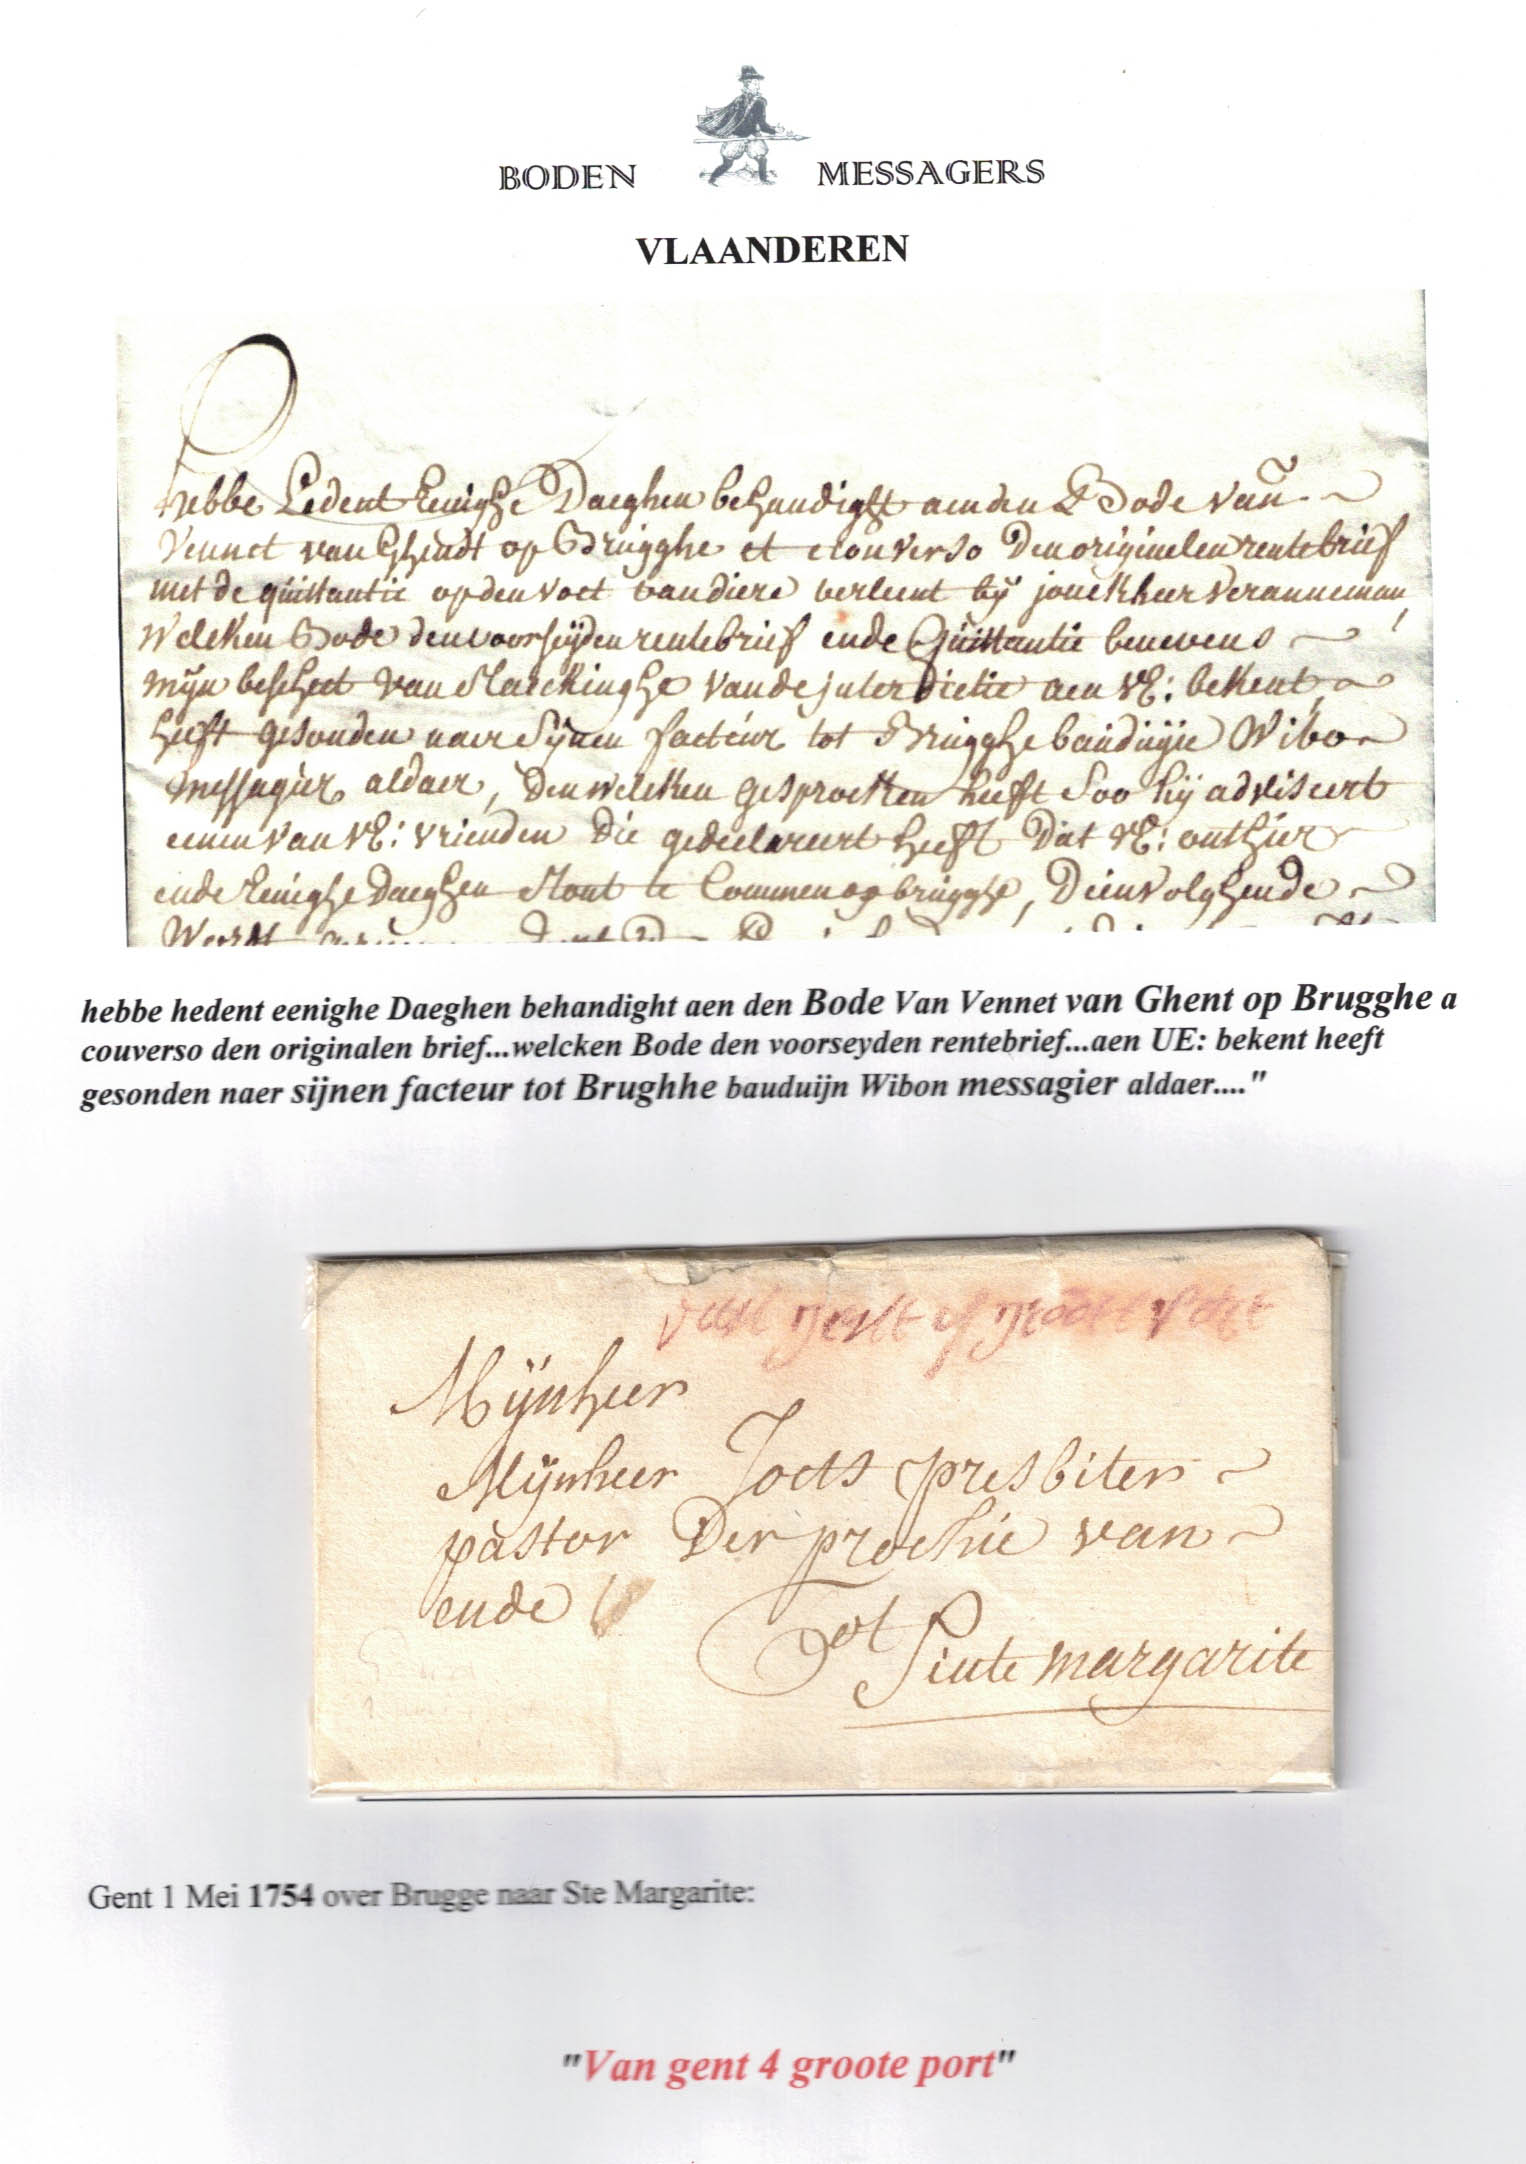 BODEN MESSAGERS
VLAANDEREN
hebbe Ledent Eenighe Daeghen behandight aen den Bode van
Vennet van Ghendt op Brugghe et econverso Den originelen rentebrief
met de quittantie op den voet van diere verleent bij jonckheer Veranneman,
Welcken Bode den voorseyden rentebrief ende Quittantie benevens
mijn bescheet van Maeckinghe van de interdictie aen VE: bekent,
heeft gesonden naer Sijnen facteur tot Brugghe bauduijn Wibo
messagier aldaer, Den welcken gesproeken heeft Soo hij adviseert
eenen van VE: vrienden die gedeclareert heeft Dat VE: onthier
ende Eenighe daeghen Stont te Commen op brugghe, Dienvolghende
hebbe hedent eenighe Daeghen behandight aen den Bode Van Vennet van Ghent op Brugghe a
couverso den originalen brief...welcken Bode den voorseyden rentebrief...aen UE: bekent heeft
gesonden naer sijnen facteur tot Brughhe bauduijn Wibon messagier aldaer...."
van gent 4 groote port
Mijnheer
Mijnheer Joets presbiter
pastor Der prochie van
ende
Tot Sinte margarite
Gent 1 Mei 1754 over Brugge naar Ste Margarite:
"Van gent 4 groote port"